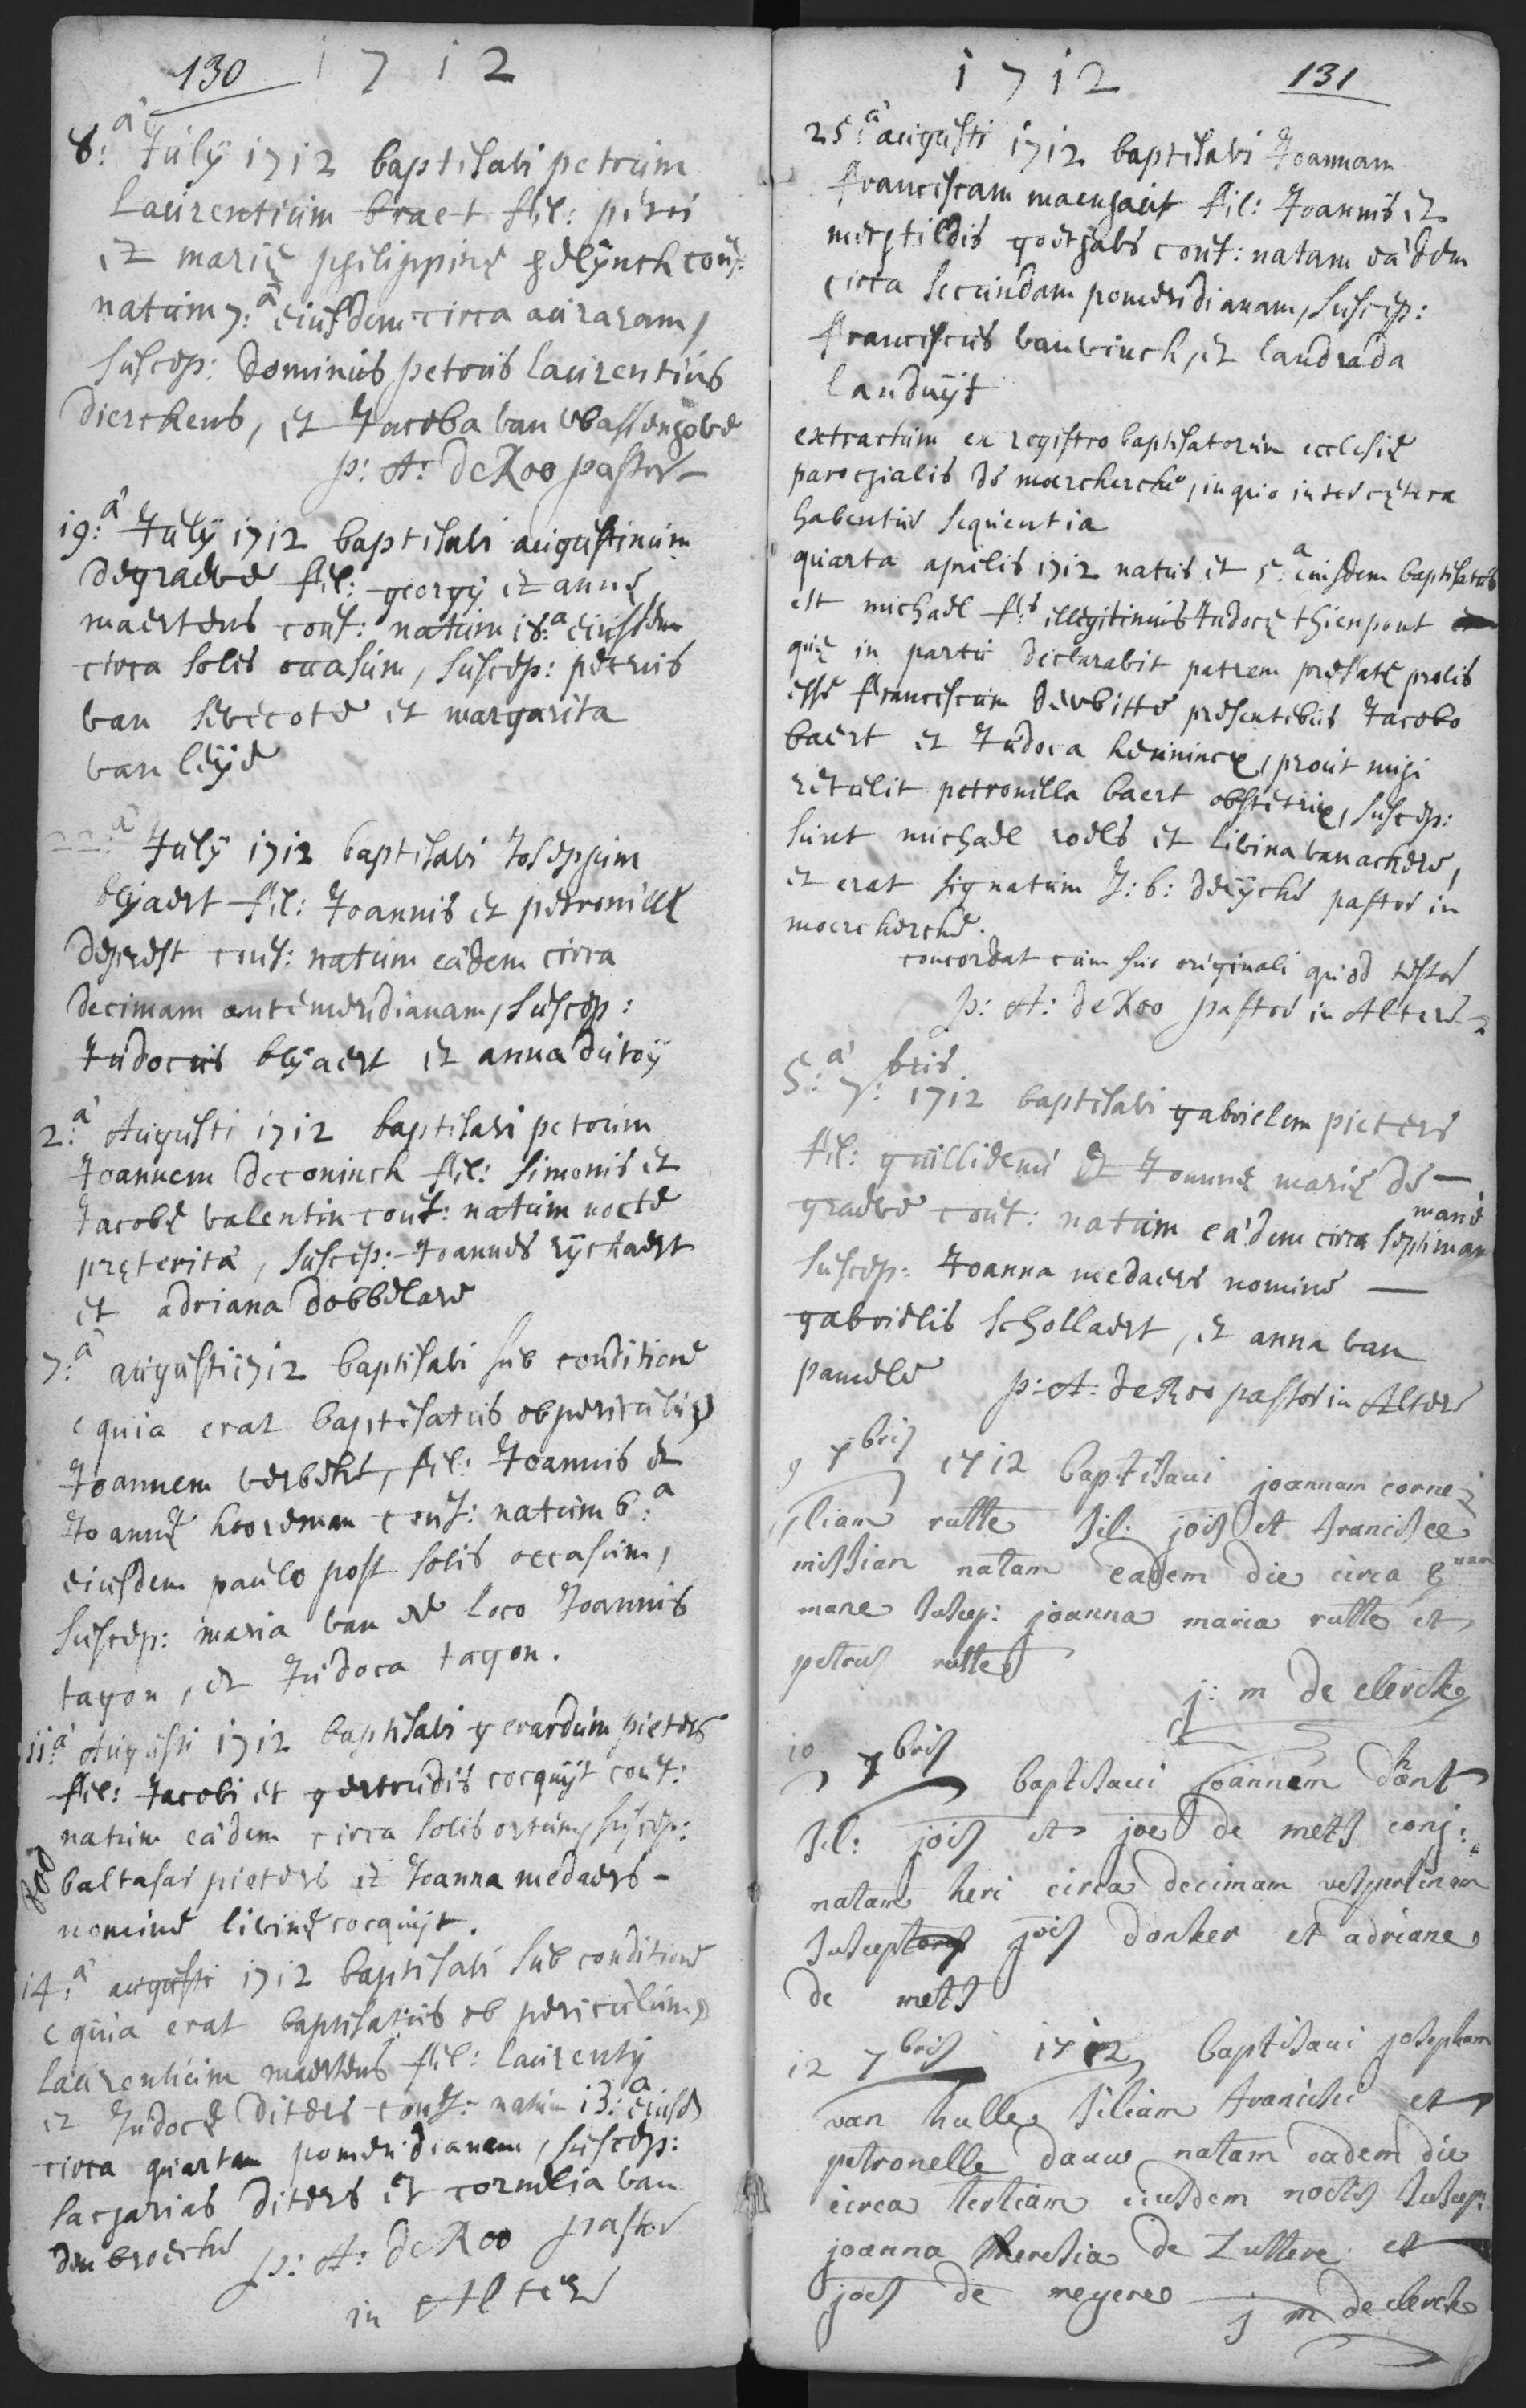 130 1712
8:a July 1712 baptisavi petrum
Laurentium braet fil: petri
et marię philippinę gelÿnck conj:
natum 7:a eiusdem circa auroram,
suscep: Dominus petrus laurentius
dierckens, et Jacoba van wassenhove
p: A: DeRoo pastor
19:a July 1712 baptisavi augustinum
Degraeve fil: georgÿ et annę
maertens conj: natum 18:a eiusdem
circa solis occasum, suscep: petrus
van sevecote et margarita
van leÿe
22:a July 1712 baptisavi Josephum
blÿaert fil: Joannis et petronillę
conj: natum eâdem circa
decimam antemeridianam, suscep:
Judocus blÿaert et anna dutoÿ
2:a Augusti 1712 baptisavi petrum
Joannem deconinck fil: simonis et
Jacobę valentin conj: natum nocte
pręterita, suscep: Joannes rÿckaert
et adriana dobbelare
7:a augusti 1712 baptisavi sub conditione
(quia erat baptisatus ob periculum)
Joannem verbeke, fil: Joannis et
Joannę hooreman conj: natum 6:a
eiusdem paulo post solis occasum,
suscep: maria van loco Joannis
tayon, et Judoca tayon.
11:a Augusti 1712 baptisavi gerardum pieters
fil: Jacobi et gertrudis cocquÿt conj:
natum eâdem circa solis ortum, suscep:
baltasar pieters et Joanna medaers -
nomine livinę cocquÿt.
14:a augusti 1712 baptisavi sub conditione
(quia erat baptisatus ob periculum)
laurentium maertens fil: laurentÿ
et Judocę diters conj: natum 13:a eiusd
circa quartam pomeridianam, suscep:
sacharias diters et cornelia van
den broecke p: A: deRoo pastor
in Alter
1712 131
25:a augusti 1712 baptisavi Joannam
franciscam maenhaut fil: Joannis et
mechtildis goethals conj: natam eâdem
circa secundam pomeridianam, suscep:
franciscus vanvinck, et landrada
landuÿt
extractum ex registro baptisatorum ecclesię
parochialis de moerkercke, in quo inter cętera
habentur sequentia
quarta aprilis 1712 natus et 5:a eiusdem baptisatus
est michael f:s illegitimus Judocę thienpont
quę in partu declaravit patrem prefatę prolis
esse franciscum dewitte presentibus Jacobo
baert et Judoca hennincx, prout mihi
retulit petronilla baert obstetrix, suscep:
sunt michael roels et livina vanackere,
et erat signatum J: b: pastor in
moerckercke.
concordat cum suo originali quod testor
p: A: deRoo pastor in Alter
5:a 7:bris 1712 baptisavi gabrielem pieters
fil: guillielmi et Joannę marię de -
graeve conj: natum eâdem circa septimam mane
suscep: Joanna medaers nomine -
gabrielis schollaert, et anna van
pamele p: A: deRoo pastor in Alter
9 7bris 1712 baptisavi joannam corne
liam rutte fil: jois et francisce
missian natam eadem die circa 8uam
mane suscep: joanna maria rutte et
petrus rutte
j: m de clerck
10 7bris baptisavi joannem dhont
fil: jois et joe de mets conj:
natam heri circa decimam vespertinam
susceptores jois donker et adriane
de mets
12 7bris 1712 baptisavi josepham
van hulle filiam francisci et
petronelle dauw natam eadem die
circa tertiam eiusdem noctis suscep:
joanna theresia de Zuttere et
joes de meyere j m de clerck